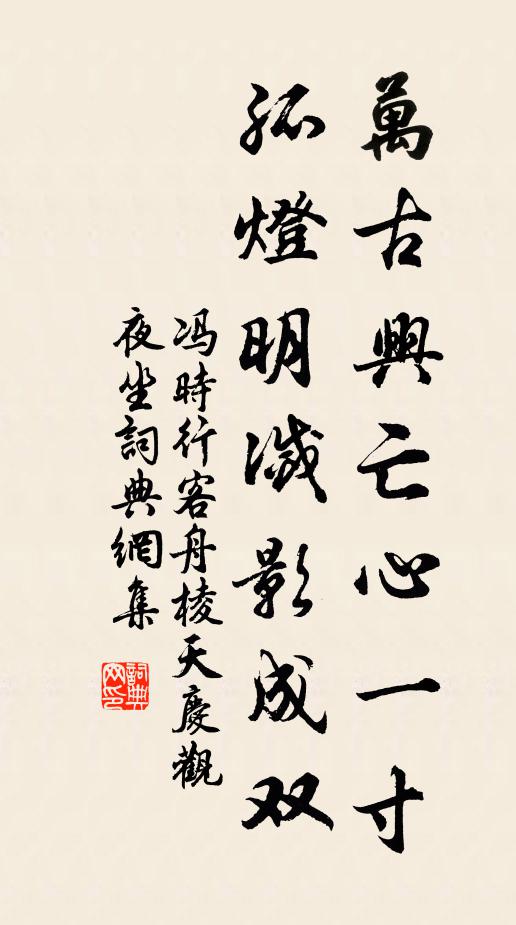 萬古興亡心一寸
孤燈明滅影成双
冯時行客舟棱天慶觀
夜坐詞典網集
詞典网印